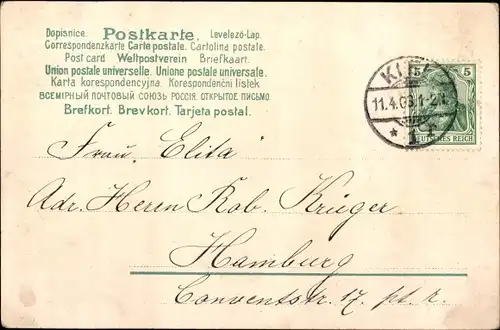 Dopisnice. Postkarte. Levelező-Lap.
Correspondenzkarte Carte postale. Cartolina postale.
Post card Weltpostverein Briefkaart.
Union postale universelle. Unione postale universale.
Karta korespondencyjna. Korespondenční lístek
ВСЕМІРНЫЙ ПОЧТОВЫЙ СОЮЗЪ РОССІЯ. ОТКРЫТОЕ ПИСЬМО.
Brefkort. Brevkort. Tarjeta postal.
5 5
11.4.03
DEUTSCHES REICH
Frau. Elita
Adr. Herrn Rob. Krüger
Hamburg
Conventstr. 17. pt. r.